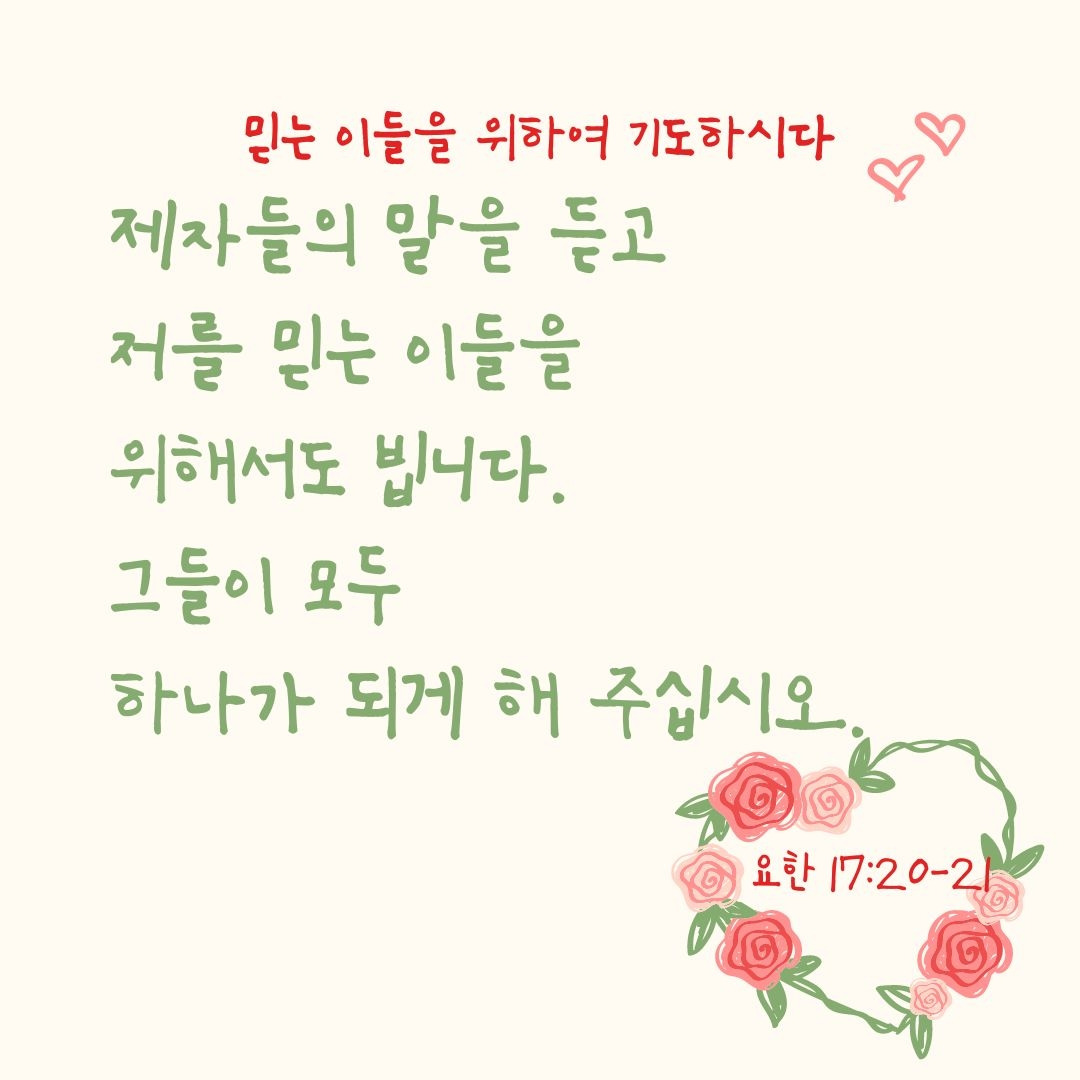 믿는 이들을 위하여 기도하시다
제자들의 말을 듣고
저를 믿는 이들을
위해서도 빕니다.
그들이 모두
하나가 되게 해 주십시오.
요한 17:20-21